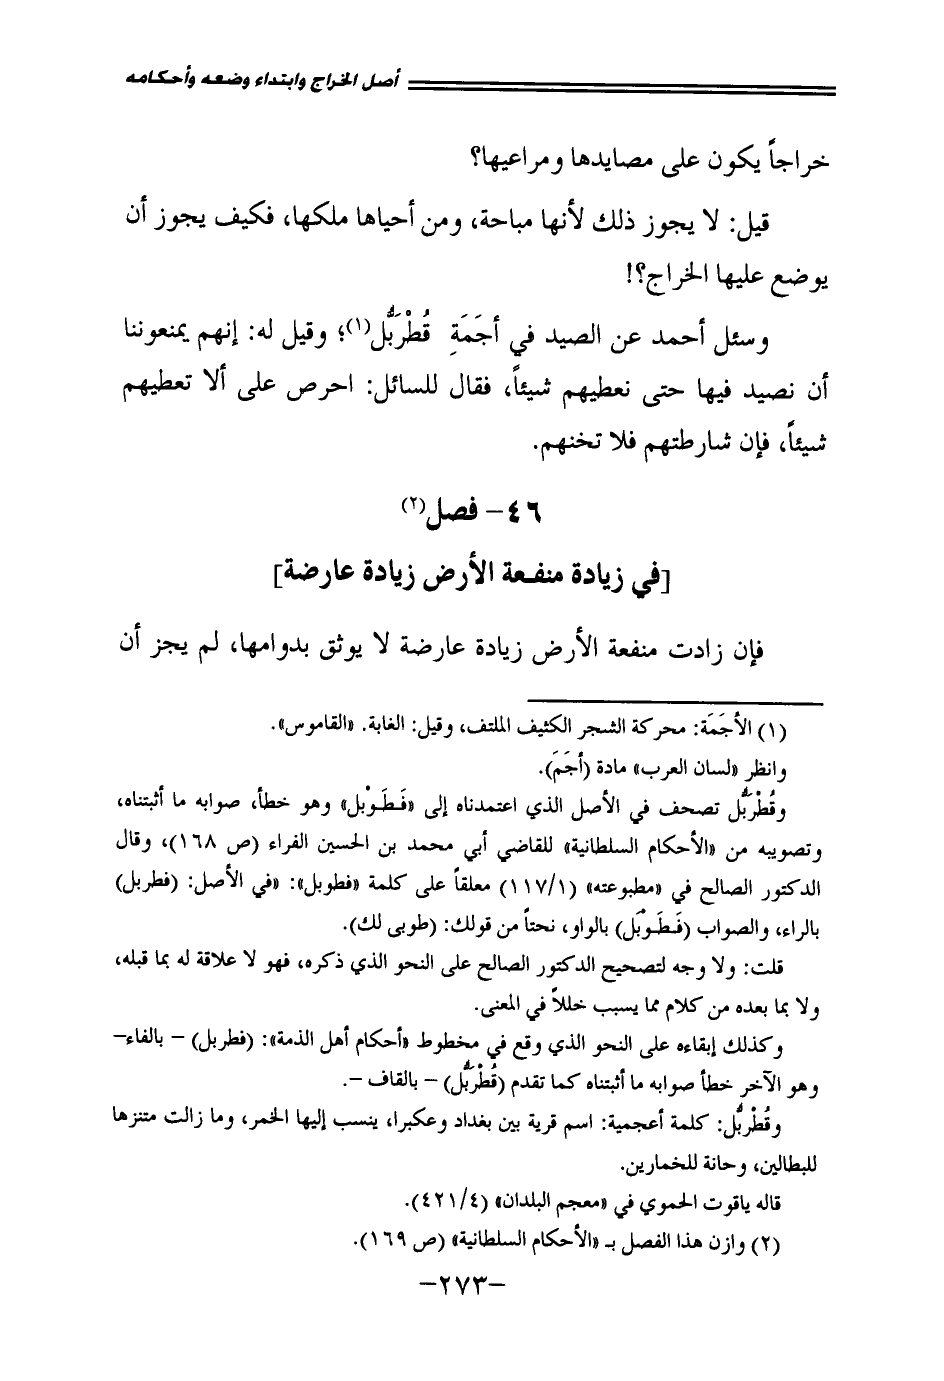 أصل الخراج وابتداء وضعه وأحكامه
خراجاً يكون على مصايدها ومراعيها؟
قيل: لا يجوز ذلك لأنها مباحة، ومن أحياها ملكها، فكيف يجوز أن
يوضع عليها الخراج؟!
وسئل أحمد عن الصيد في أجَمَةِ قُطْرَبُّل(١)؛ وقيل له: إنهم يمنعوننا
أن نصيد فيها حتى نعطيهم شيئاً، فقال للسائل: احرص على ألا تعطيهم
شيئاً، فإن شارطتهم فلا تخنهم.
٤٦– فصل(٢)
[في زيادة منفعة الأرض زيادة عارضة]
فإن زادت منفعة الأرض زيادة عارضة لا يوثق بدوامها، لم يجز أن
(١) الأجَمَة: محركة الشجر الكثيف الملتف، وقيل: الغابة. «القاموس».
وانظر «لسان العرب» مادة (أجَمَ).
وقُطْرَبُّل تصحف في الأصل الذي اعتمدناه إلى «فَطَوْبل» وهو خطأ، صوابه ما أثبتناه،
وتصويبه من «الأحكام السلطانية» للقاضي أبي محمد بن الحسين الفراء (ص ١٦٨)، وقال
الدكتور الصالح في «مطبوعته» (١١٧/١) معلقاً على كلمة «فطوبل»: «في الأصل: (فطربل)
بالراء، والصواب (فَطَوْبَل) بالواو، نحتاً من قولك: (طوبى لك).
قلت: ولا وجه لتصحيح الدكتور الصالح على النحو الذي ذكره، فهو لا علاقة له بما قبله،
ولا بما بعده من كلام مما يسبب خللاً في المعنى.
وكذلك إبقاءه على النحو الذي وقع في مخطوط «أحكام أهل الذمة»: (فطربل) – بالفاء–
وهو الآخر خطأ صوابه ما أثبتناه كما تقدم (قُطْرَبُّل) – بالقاف –.
وقُطْرَبُّل: كلمة أعجمية: اسم قرية بين بغداد وعكبرا، ينسب إليها الخمر، وما زالت متنزها
للبطالين، وحانة للخمارين.
قاله ياقوت الحموي في «معجم البلدان» (٤٢١/٤).
(٢) وازن هذا الفصل بـ «الأحكام السلطانية» (ص ١٦٩).
–٢٧٣–